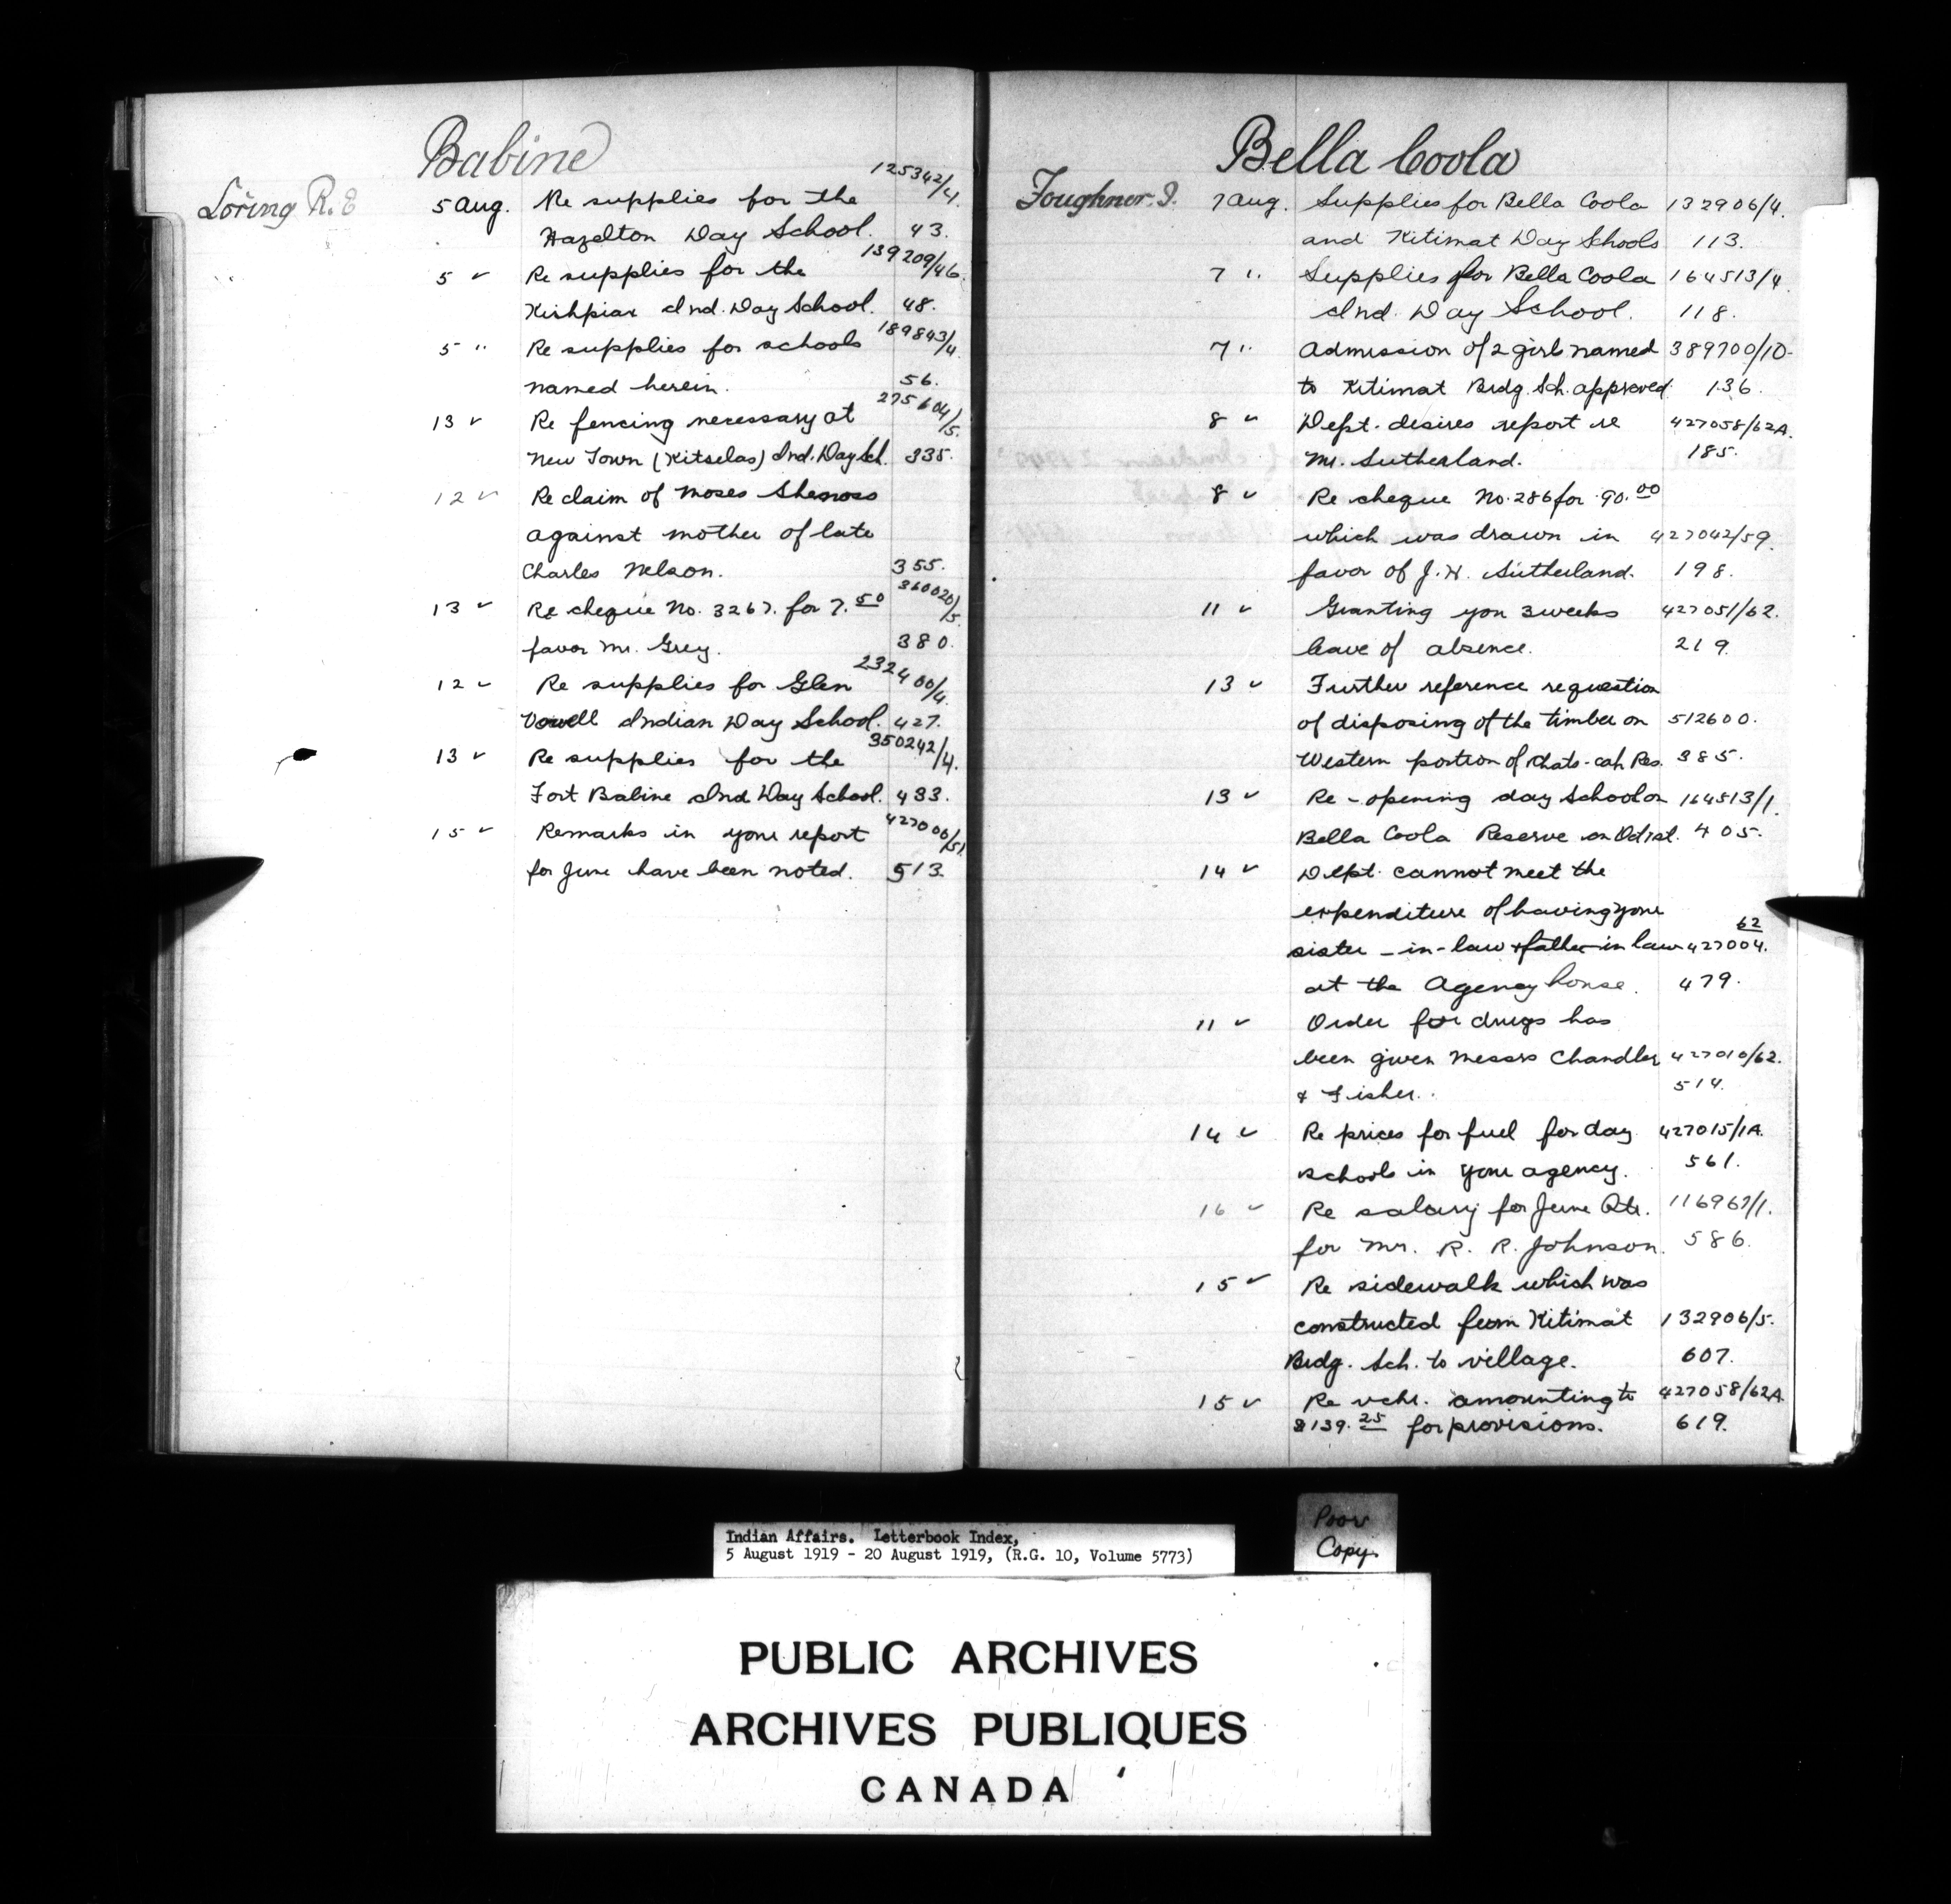 Babine
125342/4.
Loring R. E 5 Aug. Re supplies for the
Hazelton Day School. 43.
139209/46.
5 " Re supplies for the
Kishpiax Ind. Day School. 48.
189843/4.
5 " Re supplies for schools
named herein. 56.
275604/5.
13 " Re fencing necessary at
New Town (Kitselas) Ind. Day Sch. 335.
12 " Re claim of Moses
against mother of late
Charles Nelson. 355.
360020/5.
13 " Re cheque No. 3267. for 7.50
favor Mr. Grey. 380.
232400/4.
12 " Re supplies for Glen
Vowell Indian Day School. 427.
350242/4.
13 " Re supplies for the
Fort Babine Ind Day School. 433.
427006/51
15 " Remarks in your report
for June have been noted. 513.
Bella Coola
Foughner. I. 7 Aug. Supplies for Bella Coola 132906/4.
and Kitimat Day Schools 113.
7 " Supplies for Bella Coola 164513/4.
Ind. Day School. 118.
7 " Admission of 2 girls named 389700/10-
to Kitimat Brdg. Sch. approved. 136.
8 " Dept. desires report re 427058/62A.
Mr. Sutherland. 185.
8 " Re cheque No. 286 for 90.00
which was drawn in 427042/59.
favor of J. H. Sutherland. 198.
11 " Granting you 3 weeks 427051/62.
leave of absence. 219.
13 " Further reference re question
of disposing of the timber on 512600.
Western portion of Khats-cah Res. 385.
13 " Re-opening day School on 164513/1.
Bella Coola Reserve on Oct 1st. 405.
14 " Dept. cannot meet the
expenditure of having your
62
sister-in-law & father-in law 427004.
at the Agency house. 479.
11 " Order for drugs has
been given Messrs Chandler 427010/62.
& Fisher. 514.
14 " Re prices for fuel for day 427015/1A.
schools in your agency. 561.
16 " Re salary for June Qtr. 116967/1.
for Mr. R. R. Johnson. 586.
15 " Re sidewalk which was
constructed from Kitimat 132906/5.
Brdg. Sch. to village. 607.
15 " Re vchr. amounting to 427058/62A.
$139.25 for provisions. 619.
Poor
Copy.
Indian Affairs. Letterbook Index,
5 August 1919 - 20 August 1919, (R.G. 10, Volume 5773)
PUBLIC ARCHIVES
ARCHIVES PUBLIQUES
CANADA